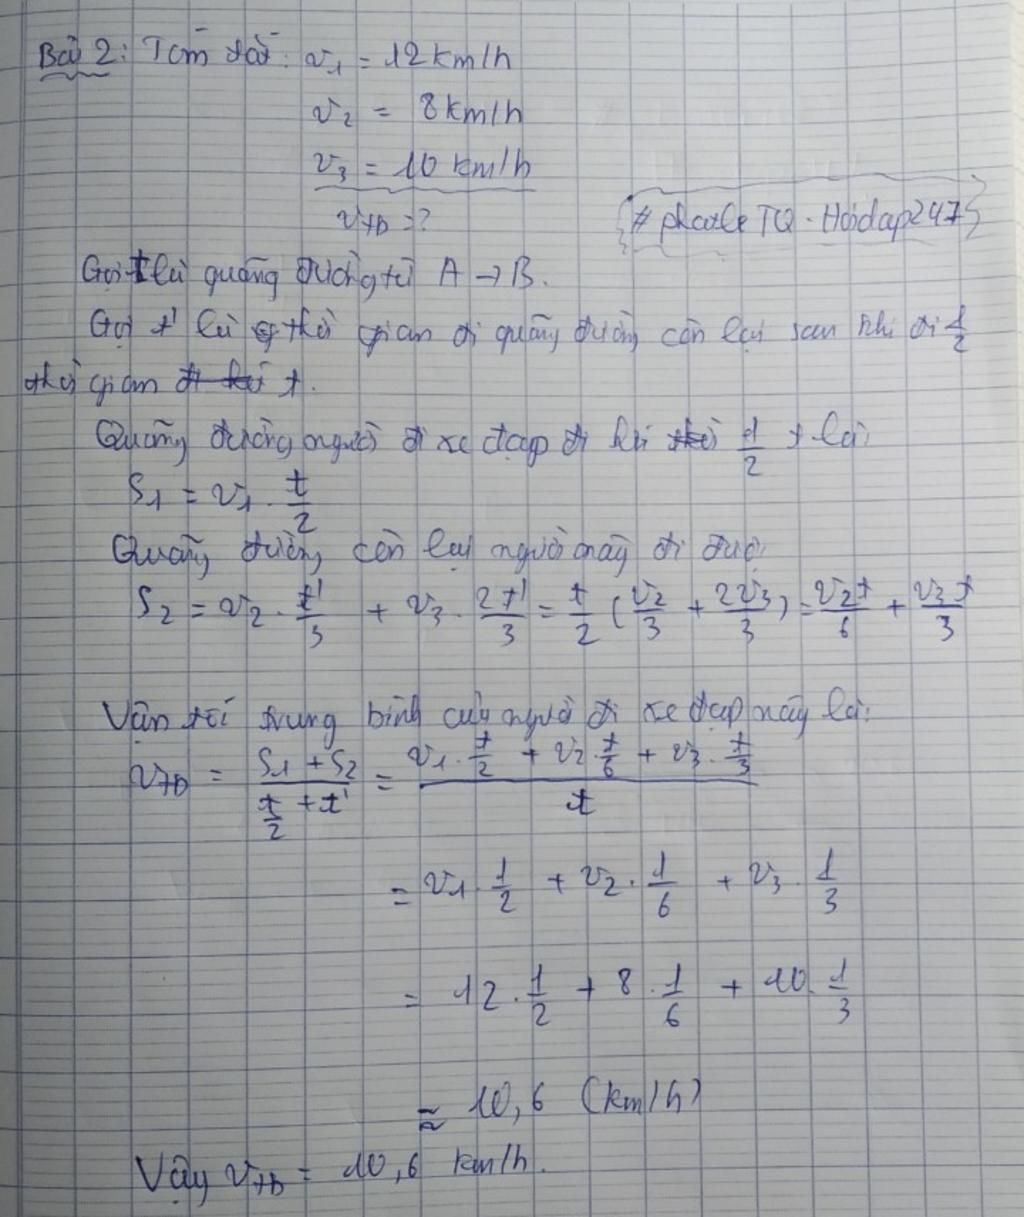 Bài 2: Tóm tắt: v₁ = 12km/h
v₂ = 8km/h
v₃ = 10 km/h
vtb = ?
TQ - Hoidap247
Gọi t là quãng đường từ A → B.
Gọi t' là thời gian đi quãng đường còn lại sau khi đi 1/2
thời gian t.
Quãng đường người đi xe đạp đi 1/2 t là:
S₁ = v₁ . t/2
Quãng đường còn lại người này đi được
S₂ = v₂ . t'/3 + v₃ . 2t'/3 = t/2 (v₂/3 + 2v₃/3) = v₂t/6 + v₃t/3
Vận tốc trung bình của người đi xe đạp này là:
vtb = (S₁ + S₂)/(t/2 + t') = (v₁ . t/2 + v₂ . t/6 + v₃ . t/3)/t
= v₁ . 1/2 + v₂ . 1/6 + v₃ . 1/3
= 12 . 1/2 + 8 . 1/6 + 10 . 1/3
≈ 10,6 (km/h)
Vậy vtb = 10,6 km/h.